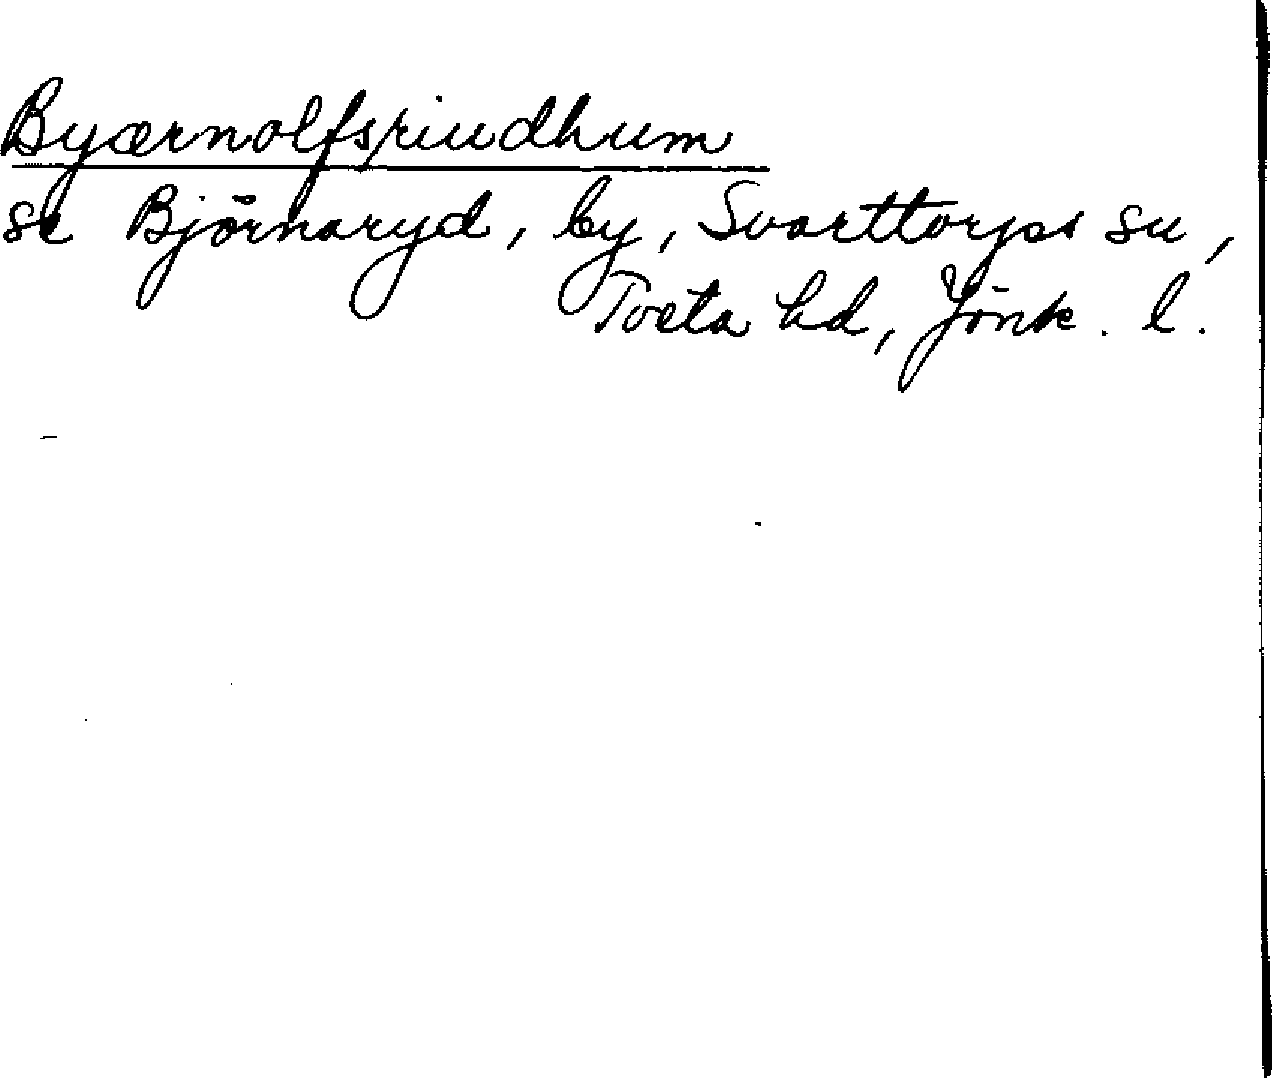 Byærnolfsriudhum
se Björnaryd, by, Svarttorps sn,
Tveta hd, Jönk. l.